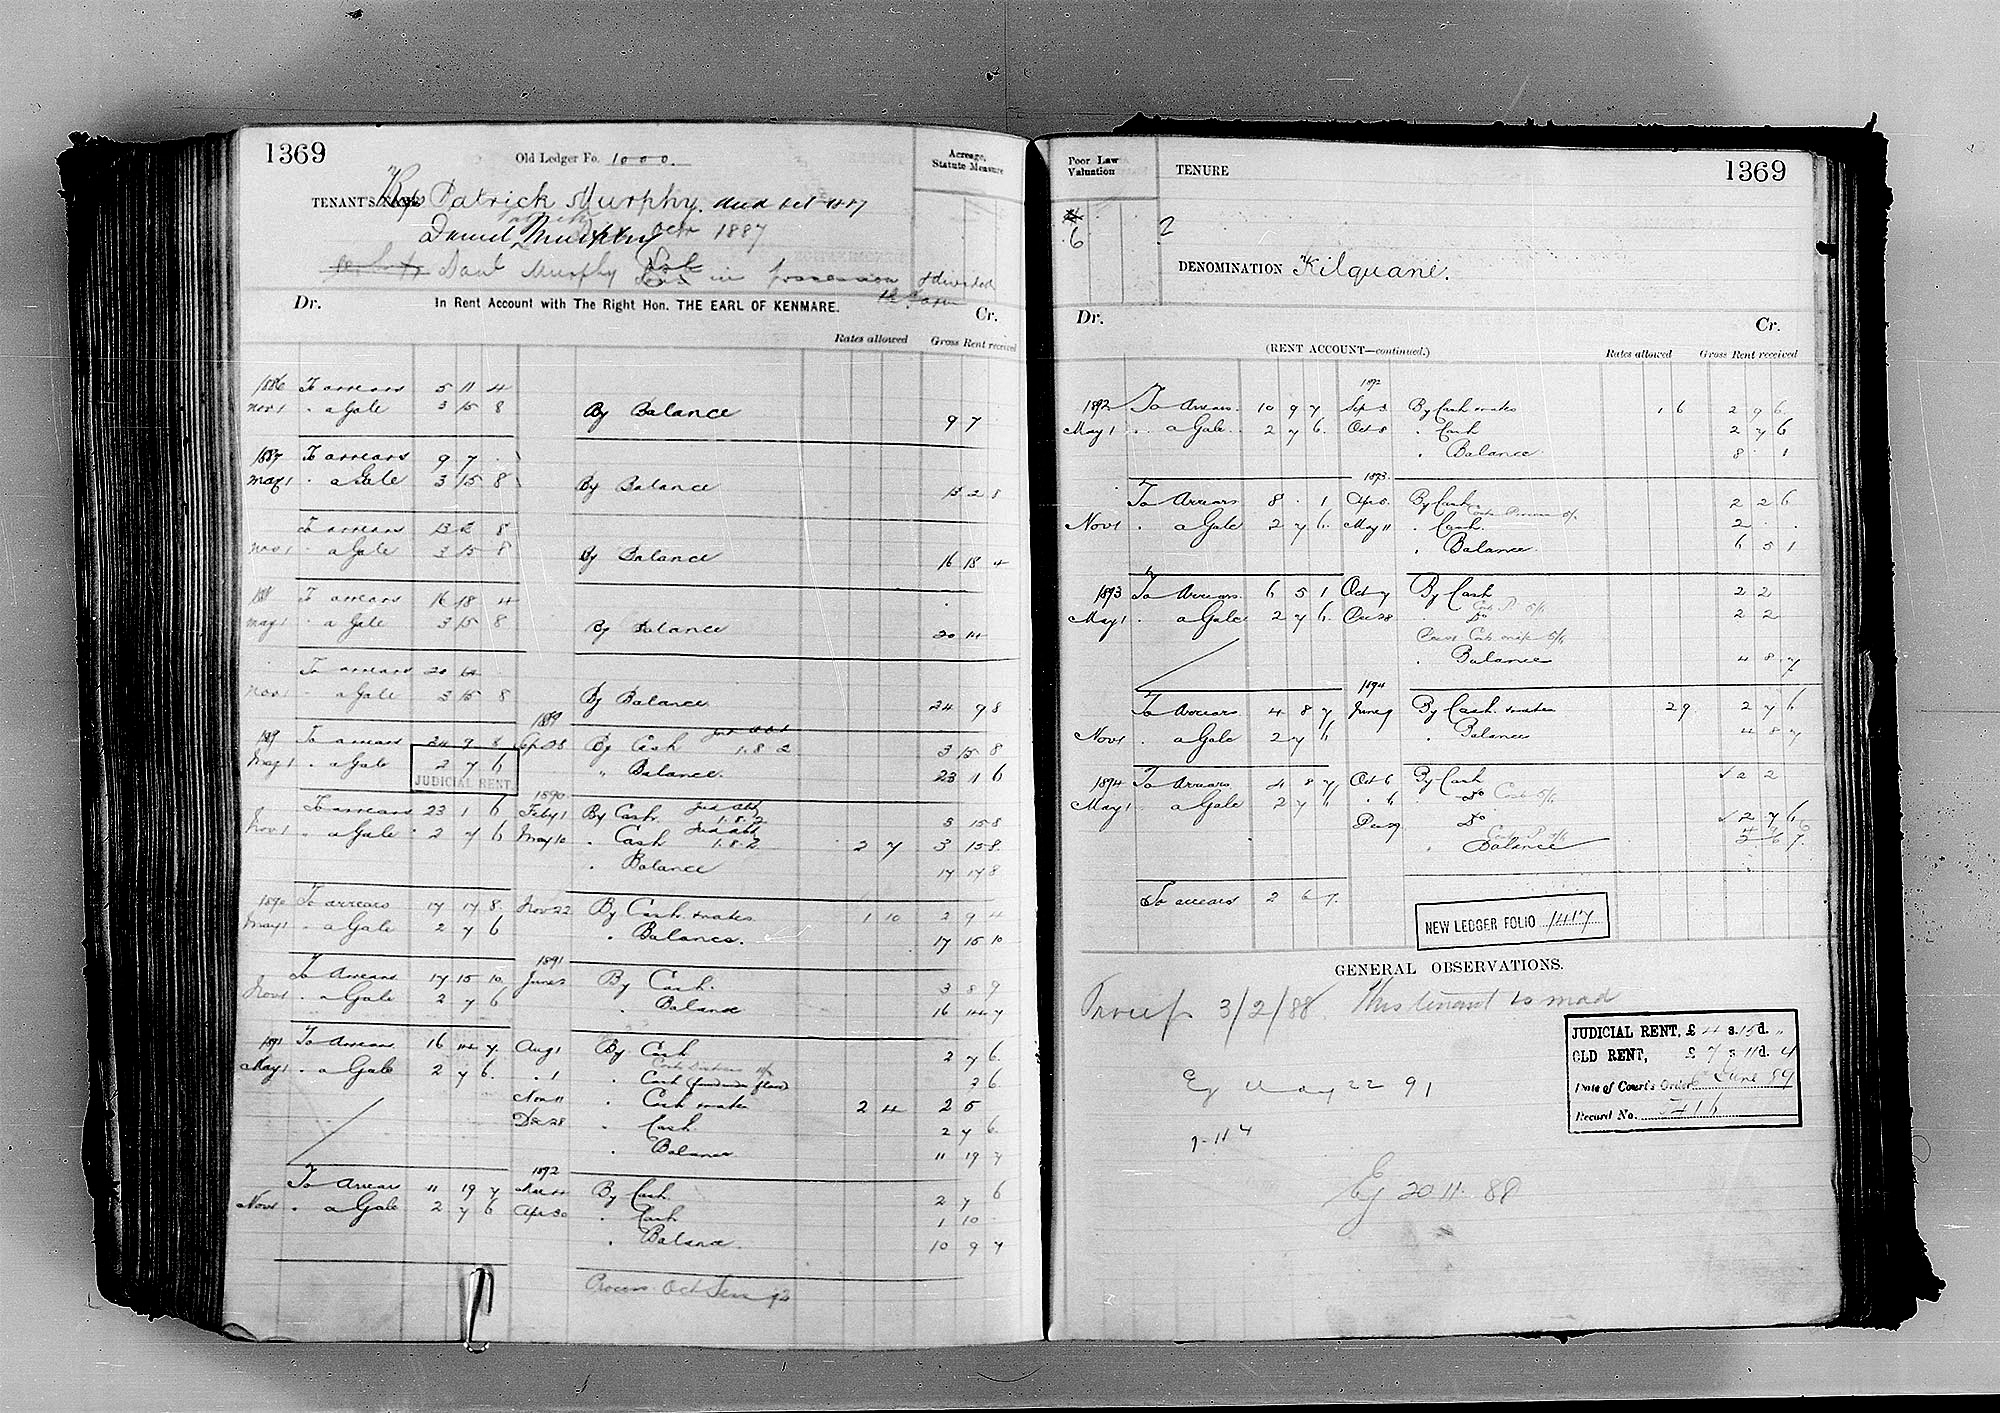 1369
Old Ledger Fo. 1000.
Acreage,
Statute Measure
TENANT'S NAME Reps Patrick Murphy. died Oct 1887
Daniel Murphy Oct 1887
Danl Murphy in possession & divided
the Farm
Dr. In Rent Account with The Right Hon. THE EARL OF KENMARE. Cr.
Rates allowed Gross Rent received
1886 To arrears 5 11 4
Nov 1 " a Gale 3 15 8 By Balance 9 7
1887 To arrears 9 7
May 1 " a Gale 3 15 8 By Balance 12 2 8
To arrears 12 2 8
Nov 1 " a Gale 3 15 8 By Balance 16 18 4
1888 To arrears 16 18 4
May 1 " a Gale 3 15 8 By Balance 20 14
To arrears 20 14
Nov 1 " a Gale 3 15 8 By Balance 24 9 8
1889
1889 To arrears 24 9 8 Sep 28 By Cash 1.8.2 3 15 8
May 1 " a Gale 2 7 6 " Balance 23 1 6
JUDICIAL RENT
1890
To arrears 23 1 6 Feby 1 By Cash Jud Abt 1.8.2 3 15 8
Nov 1 " a Gale 2 7 6 May 10 " Cash Jud Abt 1.8.2 2 7 3 15 8
" Balance 17 17 8
1890 To arrears 17 17 8 Nov 22 By Cash & rates 1 10 2 9 4
May 1 " a Gale 2 7 6 " Balance. 17 15 10
1891
To Arrears 17 15 10 June 2 By Cash. 3 8 9
Nov 1 " a Gale 2 7 6 " Balance 16 14 7
1891 To Arrears 16 14 7 Aug 1 By Cash 2 7 6
May 1 " a Gale 2 7 6 " 1 " Cash 2 6
Nov 11 " Cash & rates 2 4 2 5
Dec 28 " Cash 2 7 6
" Balance 11 19 7
1892
To Arrears 11 19 7 Mar By Cash 2 7 6
Nov 1 " a Gale 2 7 6 Apr 30 " Cash 1 10
" Balance. 10 9 7
Process Oct 92
Poor Law
Valuation
TENURE
1369
6
2
DENOMINATION Kilquane.
Dr. Cr.
(RENT ACCOUNT—continued.)
Rates allowed Gross Rent received
1892
1892 To Arrears. 10 9 7 Sep 3 By Cash & rates 1 6 2 9 6
May 1 " a Gale. 2 7 6 Oct 8 " Cash 2 7 6
" Balance 8 " 1
1893
To Arrears 8 " 1 Apr 8 By Cash 2 2 6
Nov 1 " a Gale 2 7 6 May 11 " Cash. 2 " "
" Balance 6 5 1
1893 To Arrears. 6 5 1 Oct 7 By Cash 2 2
May 1 " a Gale 2 7 6 Do 2 2
" Balance 4 8 7
1894
To Arrears 4 8 7 June 9 By Cash & rates 2 9 2 7 6
Nov 1 " a Gale 2 7 6 " Balance 4 8 7
1894 To Arrears 4 8 7 Oct 6 By Cash 2 2
May 1 " a Gale 2 7 6 " 6 Do
Do 2 7 6
" Balance
To arrears 2 6 7
NEW LEDGER FOLIO 1417
GENERAL OBSERVATIONS.
3/2/88. This tenant is mad
JUDICIAL RENT, £ 4 s. 15 d. "
OLD RENT, £ 7 s 11 d. 4
Date of Court's Order June 89
Record No. 5416
Ej May 22 91
7-11 4
Ej 20 11 88